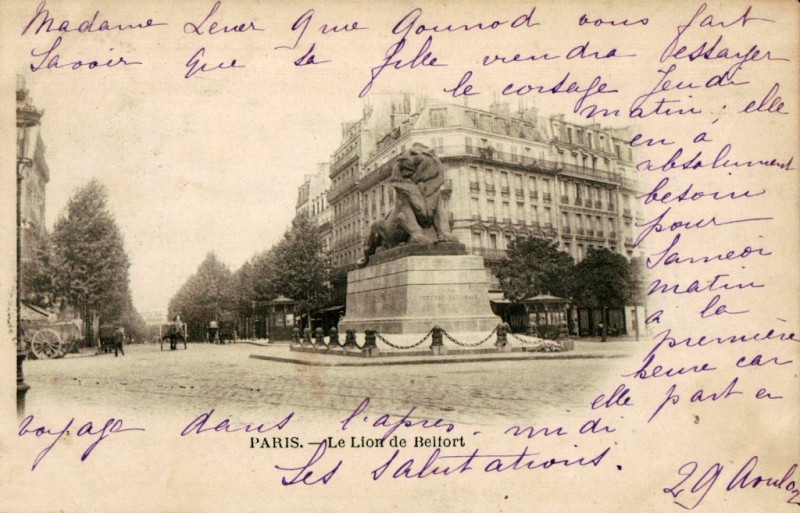 Madame Gounod vous fait
Savoir que sa fille viendra essayer
le corsage Jeudi
matin; elle
en a
absolument
besoin
pour
Samedi
matin
a la
première
heure car
elle part en
voyage dans l'après-midi
PARIS. — Le Lion de Belfort
Ses Salutations.
29